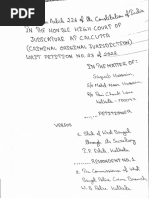 Under Article 226 of the Constitution of India
IN THE HONBLE HIGH COURT OF
JUDICATURE AT CALCUTTA
(CRIMINAL ORIGINAL JURISDICTION)
WRIT PETITION NO. 23 of 2022
IN THE MATTER OF:
Hussain,
S/o Mohd Hussain,
R/o Park Street Lane
Kolkata - 700073
... PETITIONER
VERSUS
1. State of West Bengal
Through its Secretary
Kolkata
... RESPONDENT NO. 1
2. The Commissioner of West
Bengal Police, Crime Branch,
Kolkata